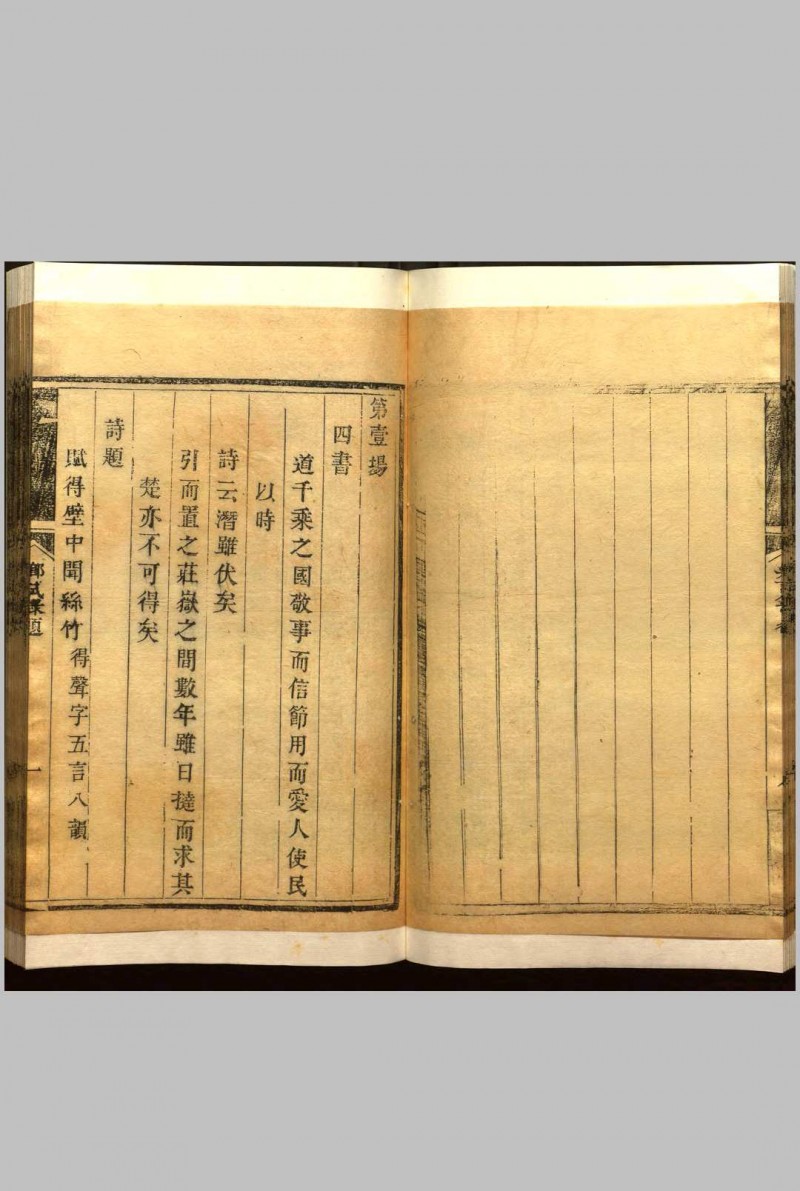 第壹塲
四書
道千乘之國敬事而信節用而愛人使民
以時
詩云潛雖伏矣
引而置之莊嶽之間數年雖日撻而求其
楚亦不可得矣
詩題
賦得壁中聞絲竹得聲字五言八韻
鄉試錄題
一